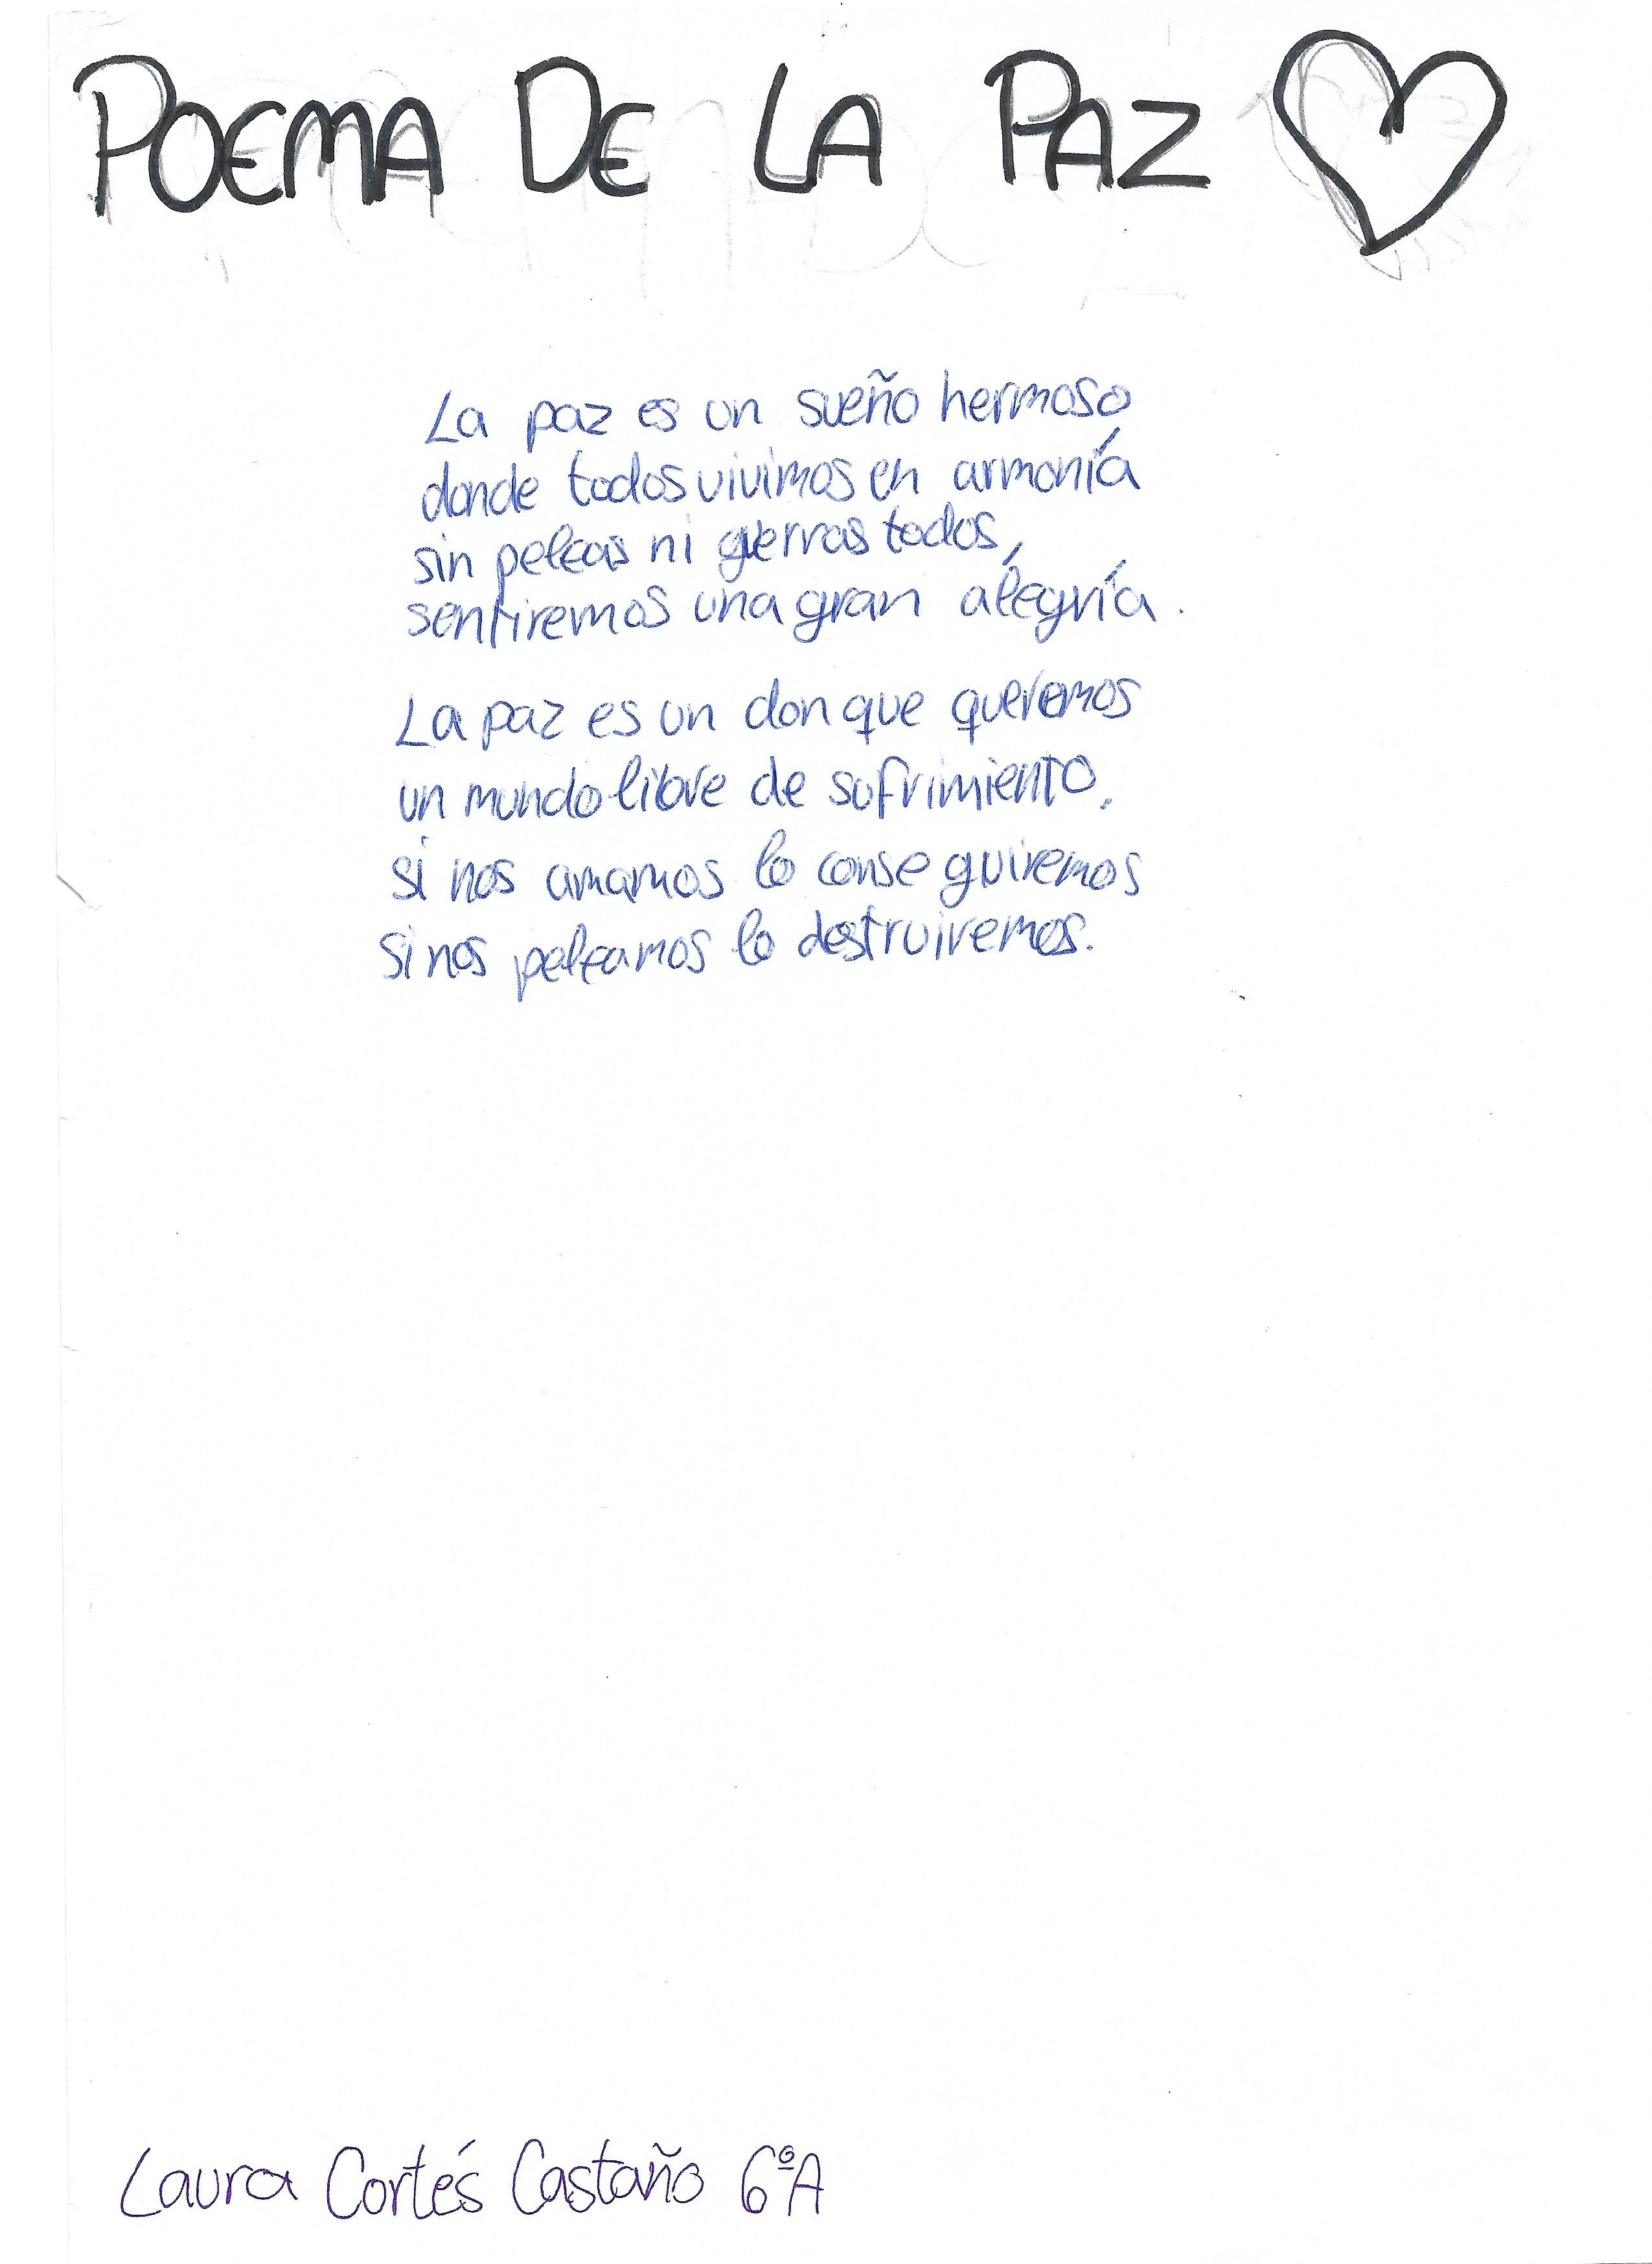 POEMA DE LA PAZ
La paz es un sueño hermoso
donde todos vivimos en armonía
sin peleas ni guerras todos,
sentiremos una gran alegría.
La paz es un don que queremos
un mundo libre de sufrimiento,
si nos amamos lo conseguiremos
si nos peleamos lo destruiremos.
Laura Cortés Castaño 6ºA